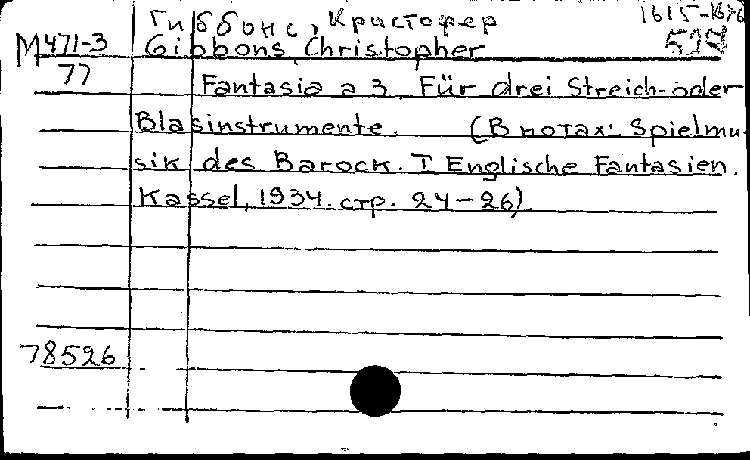 Гиббонс, Кристофер 1615-1676
М471-3 Gibbons Christopher
77 Fantasia a 3. Für drei Streich-oder
Blasinstrumente. (В нотах: Spielmu-
sik des Barock. I Englische Fantasien.
Kassel, 1934. стр. 24-26).
78526